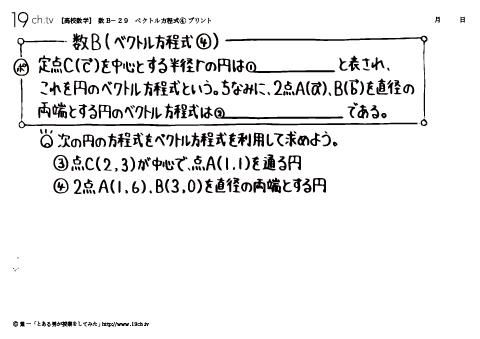 19ch.tv 【高校数学】 数B-29 ベクトル方程式④ プリント 月 日
数B(ベクトル方程式④)
ポ 定点C(c→)を中心とする半径rの円は①__________と表され、
これを円のベクトル方程式という。ちなみに、2点A(a→)、B(b→)を直径の
両端とする円のベクトル方程式は②__________である。
Q 次の円の方程式をベクトル方程式を利用して求めよう。
③点C(2,3)が中心で、点A(1,1)を通る円
④2点A(1,6)、B(3,0)を直径の両端とする円
© 葉一「とある男が授業をしてみた」http://www.19ch.tv